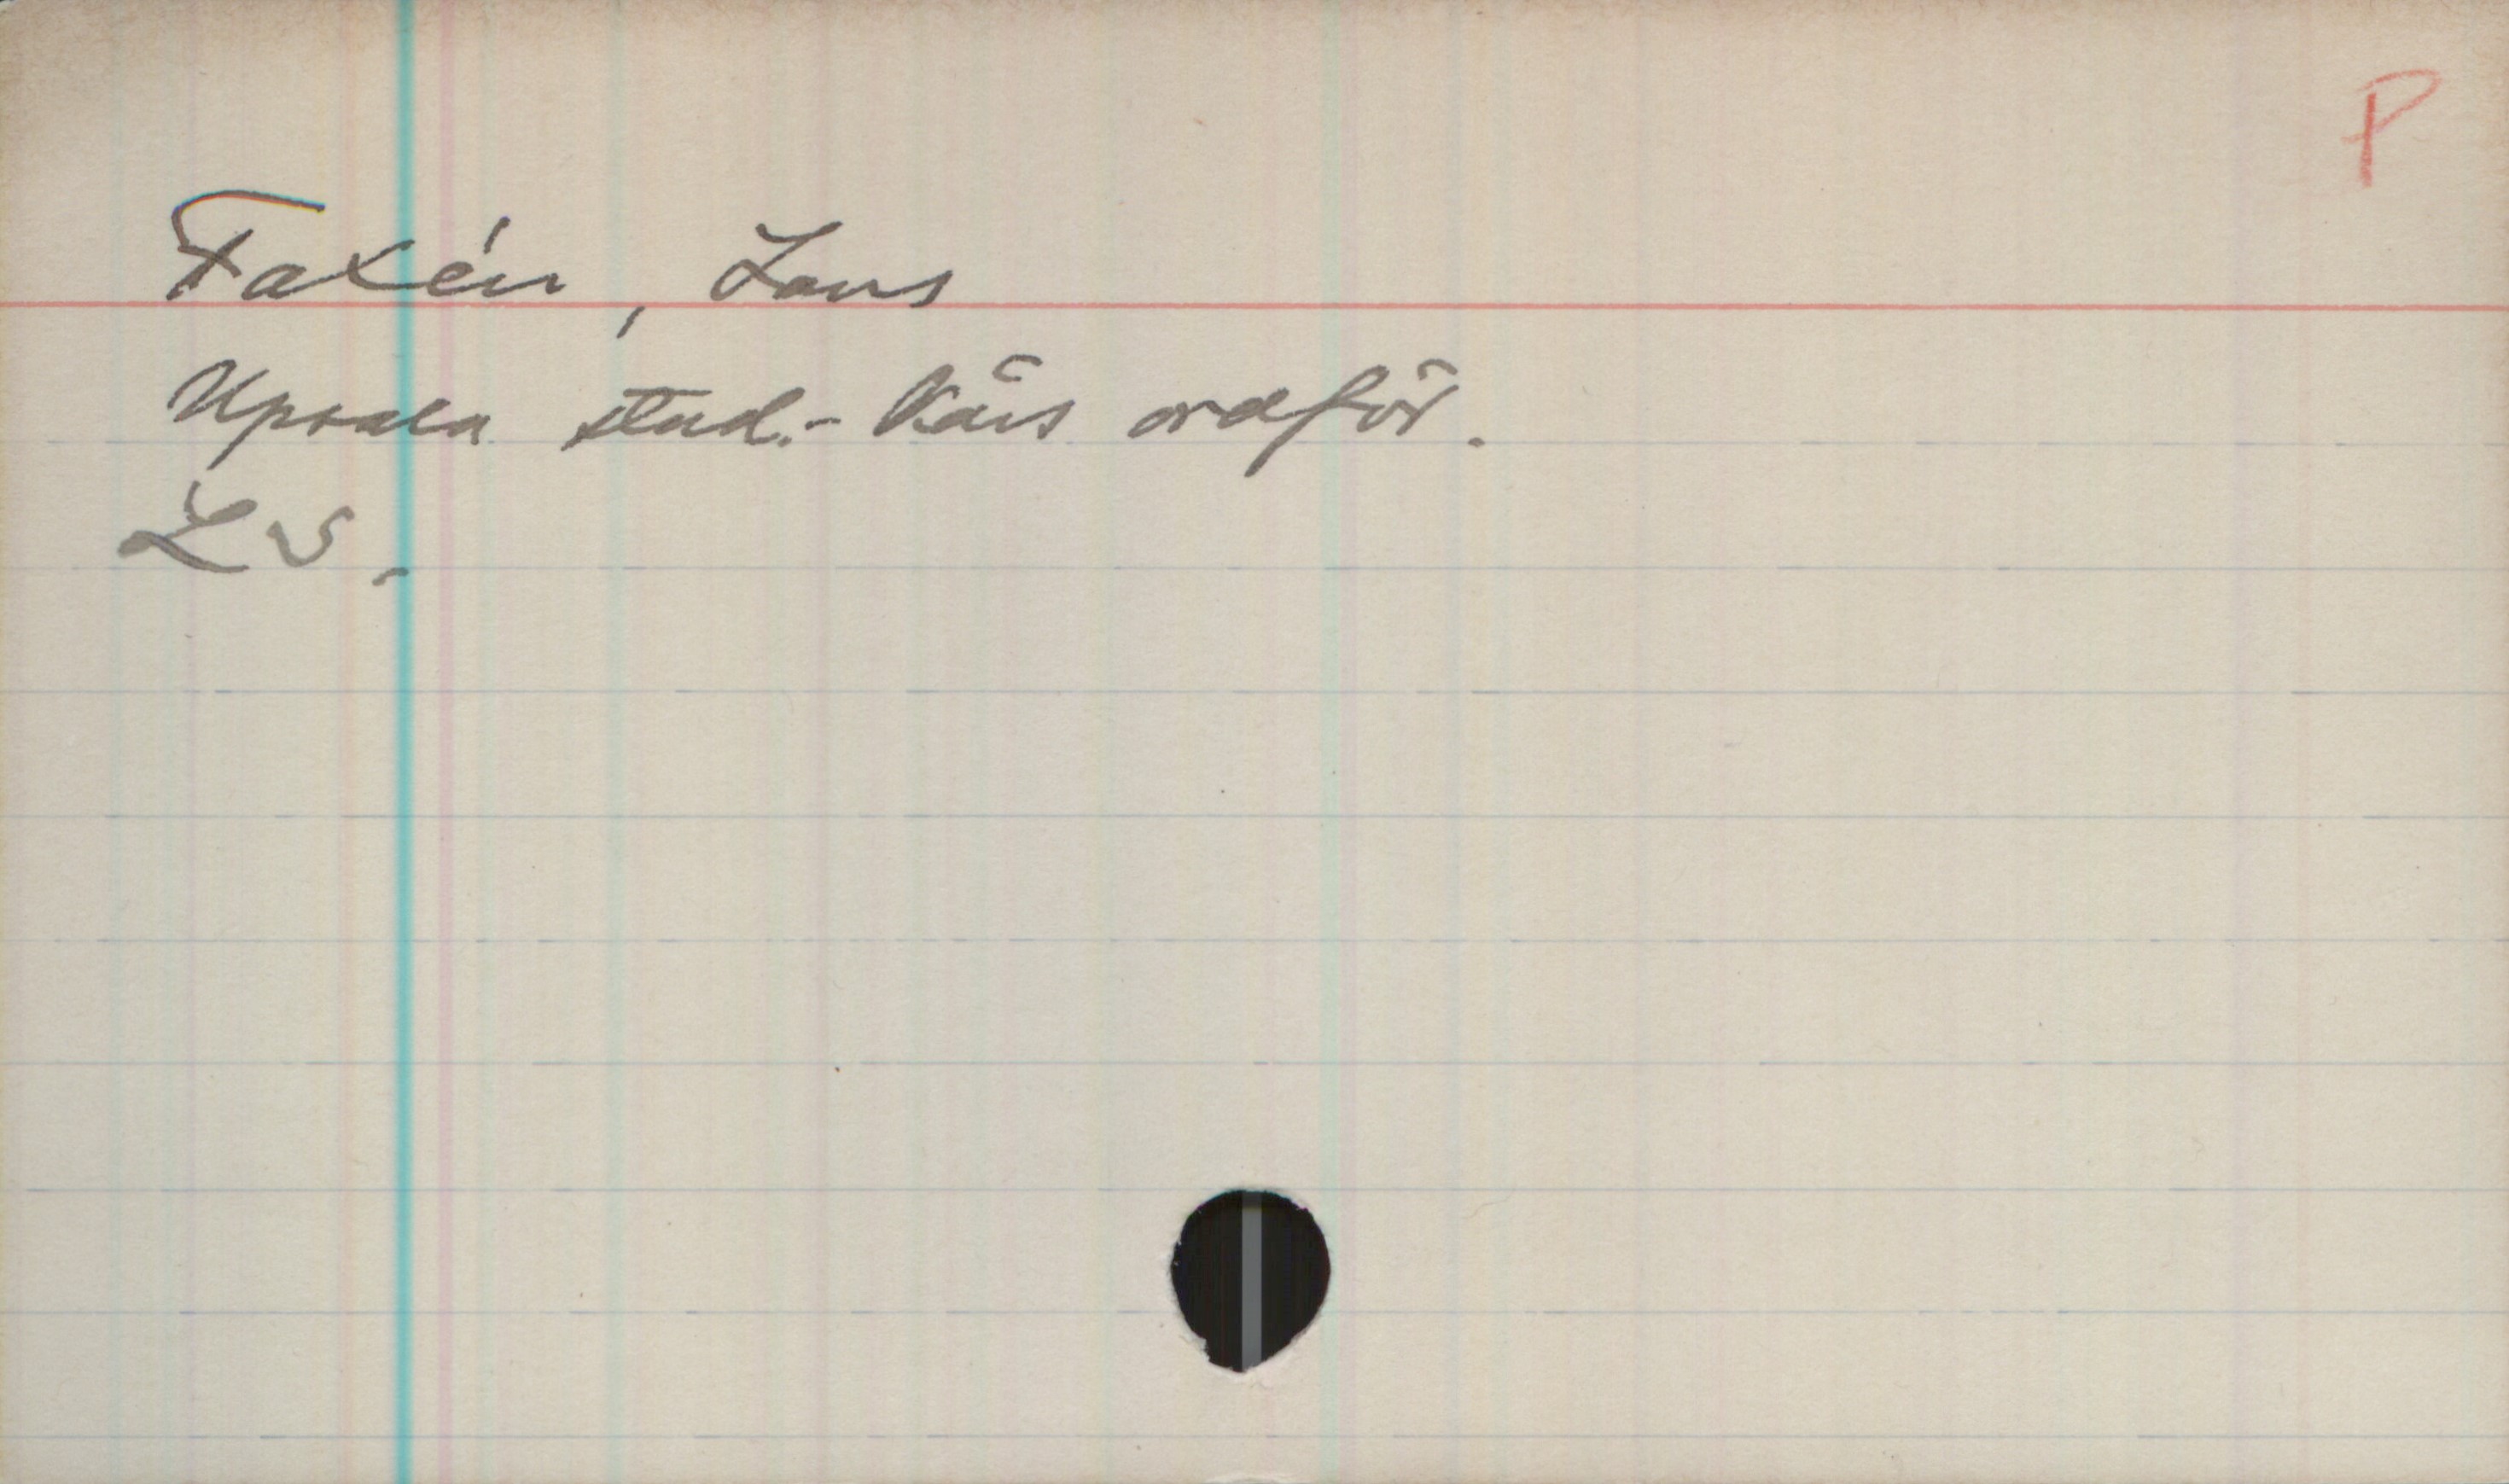 P
Faxén, Lars
Upsala stud.-kårs ordför.
LS.